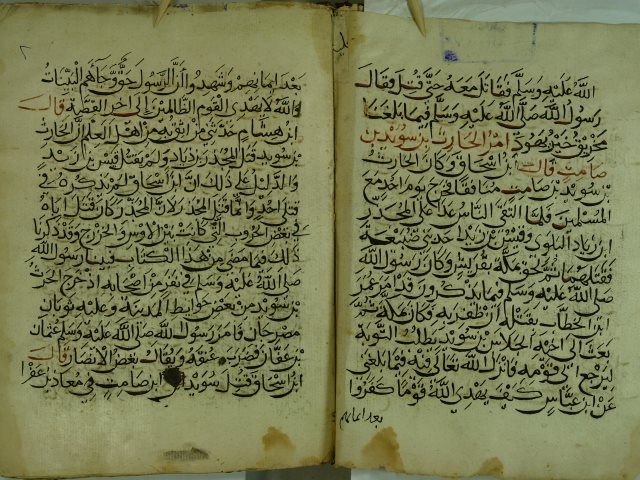 الله عليه وسلم فقاتل معه حتى قتل وقال
رسول الله صلى الله عليه وسلم فيما بلغنا
مخريق خير يهود امر الحارث بن سويد بن
صامت قال ابن اسحاق وكان الحارث
بن سويد بن صامت منافقا فخرج يوم احد مع
المسلمين فلما التقى الناس عدا على المجذر
ابن زياد البلوي وقيس بن زيد احدى ضبيعة
فقتلهما ثم لحق بمكة بقريش وكان رسول الله
صلى الله عليه وسلم فيما يذكرون قد امر عمر
ابن الخطاب بقتله ان ظفر به وكان بمكة ثم
بعث الى اخيه الجلاس بن سويد يطلب التوبة
ليرجع الى قومه فانزل الله تعالى فيه فيما بلغني
عن ابن عباس كيف يهدي الله قوما كفروا
بعد ايمانهم
٢
بعد ايمانهم وشهدوا ان الرسول حق وجاهم البينات
والله لا يهدي القوم الظالمين الى اخر القصة قال
ابن هشام حدثني من اثق به من اهل العلم ان الحارث
بن سويد قتل المجذر بن زياد ولم يقتل قيس بن زيد
والدليل على ذلك ان ابن اسحاق لم يذكره في
قتلى احد وانما قتل المجذر لان المجذر كان قتل اباه
في بعض الحروب التي كانت بين الاوس والخزرج وقد ذكرنا
ذلك فيما مضى من هذا الكتاب فبينا رسول الله
صلى الله عليه وسلم في نفر من اصحابه اذ خرج الحرث
بن سويد من بعض حوايط المدينة وعليه ثوبان
مضرجان فامر رسول الله صلى الله عليه وسلم عثمان
بن عفان فضرب عنقه ويقال بعض الانصار قال
ابن اسحاق قتل سويد ابن صامت معاذ بن عفرا